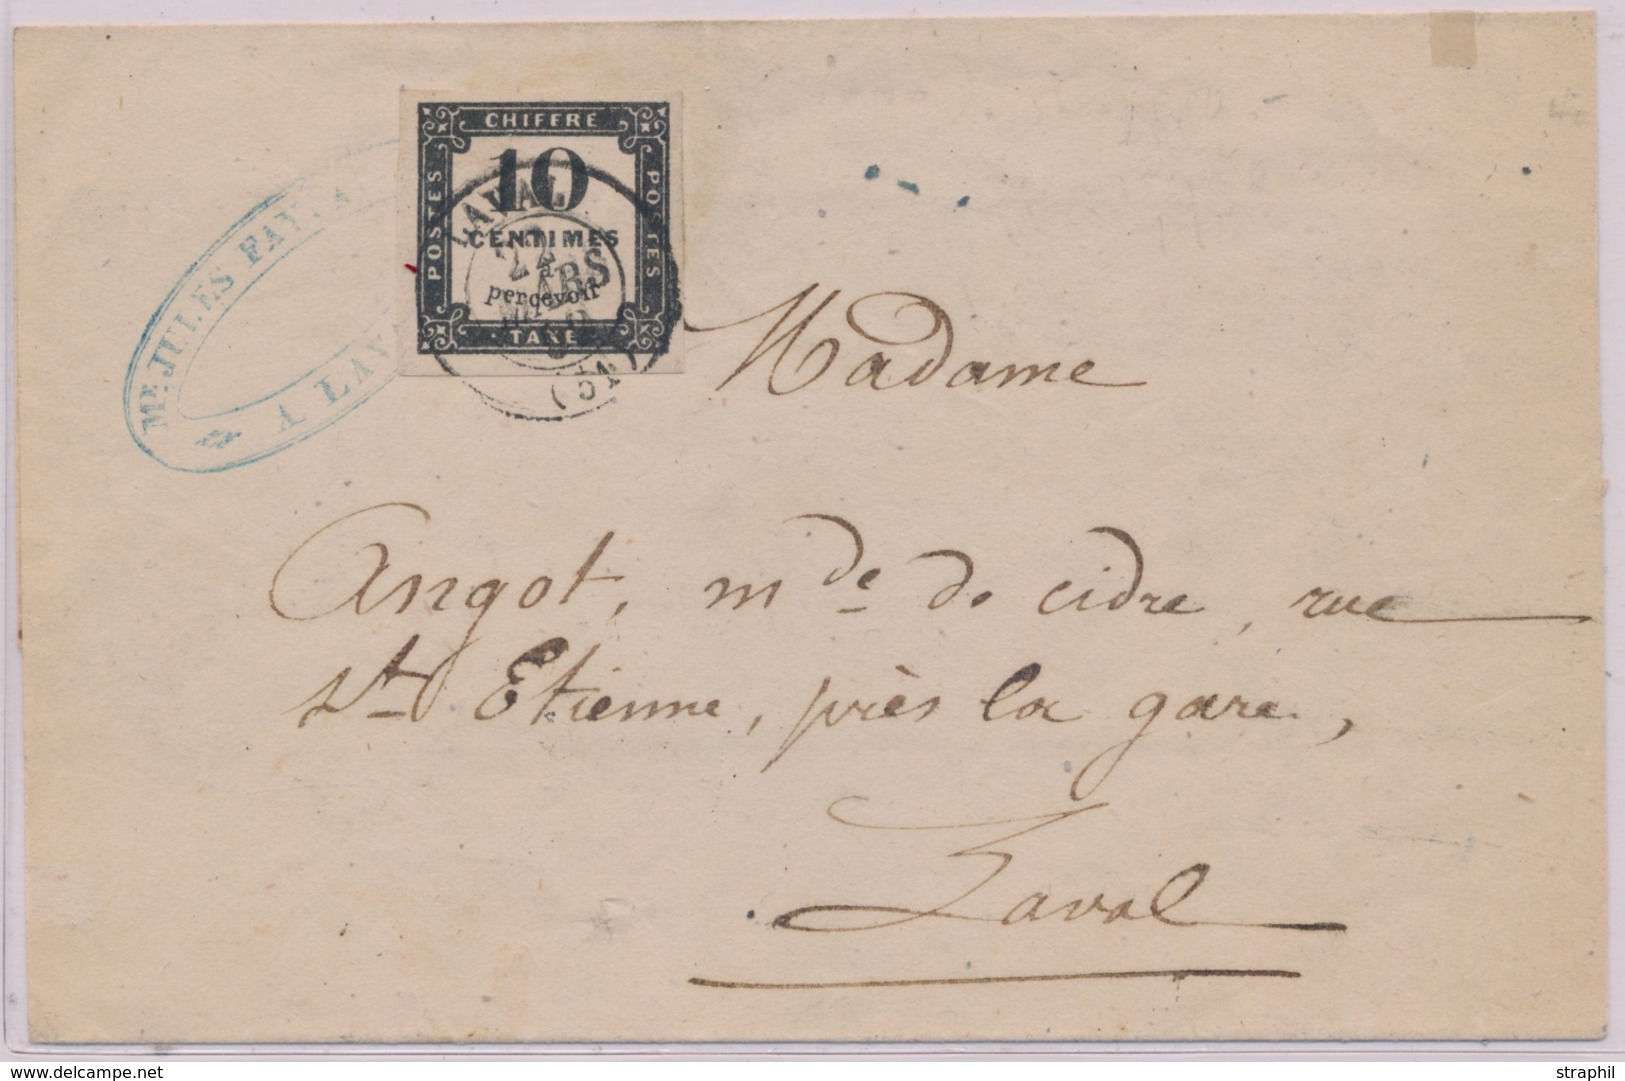 CHIFFRE
POSTES
POSTES
10
CENTIMES
à
percevoir
TAXE
LAVAL
22
MARS
Me. JULES FAY
A LAV
Madame
Angot, mde de cidre, rue
St Etienne, près la gare,
Laval
© www.delcampe.net
straphil